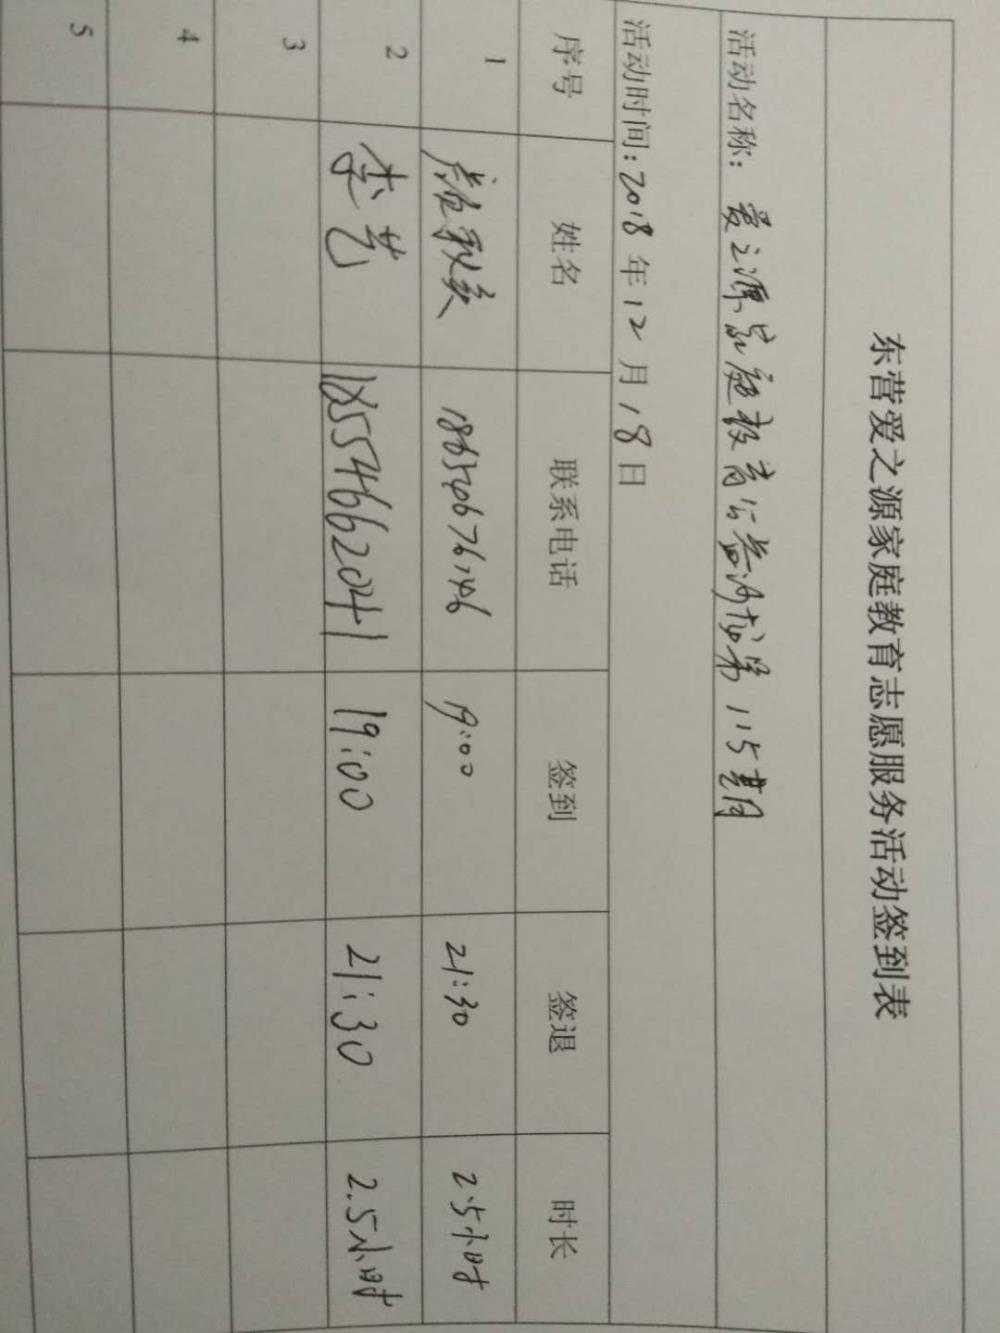 东营爱之源家庭教育志愿服务活动签到表
活动名称：爱之源家庭教育公益沙龙第115期
活动时间：2018年12月18日
序号 姓名 联系电话 签到 签退 时长
1 秋 19:00 21:30 2.5小时
2 李艺 18554662041 19:00 21:30 2.5小时
3
4
5